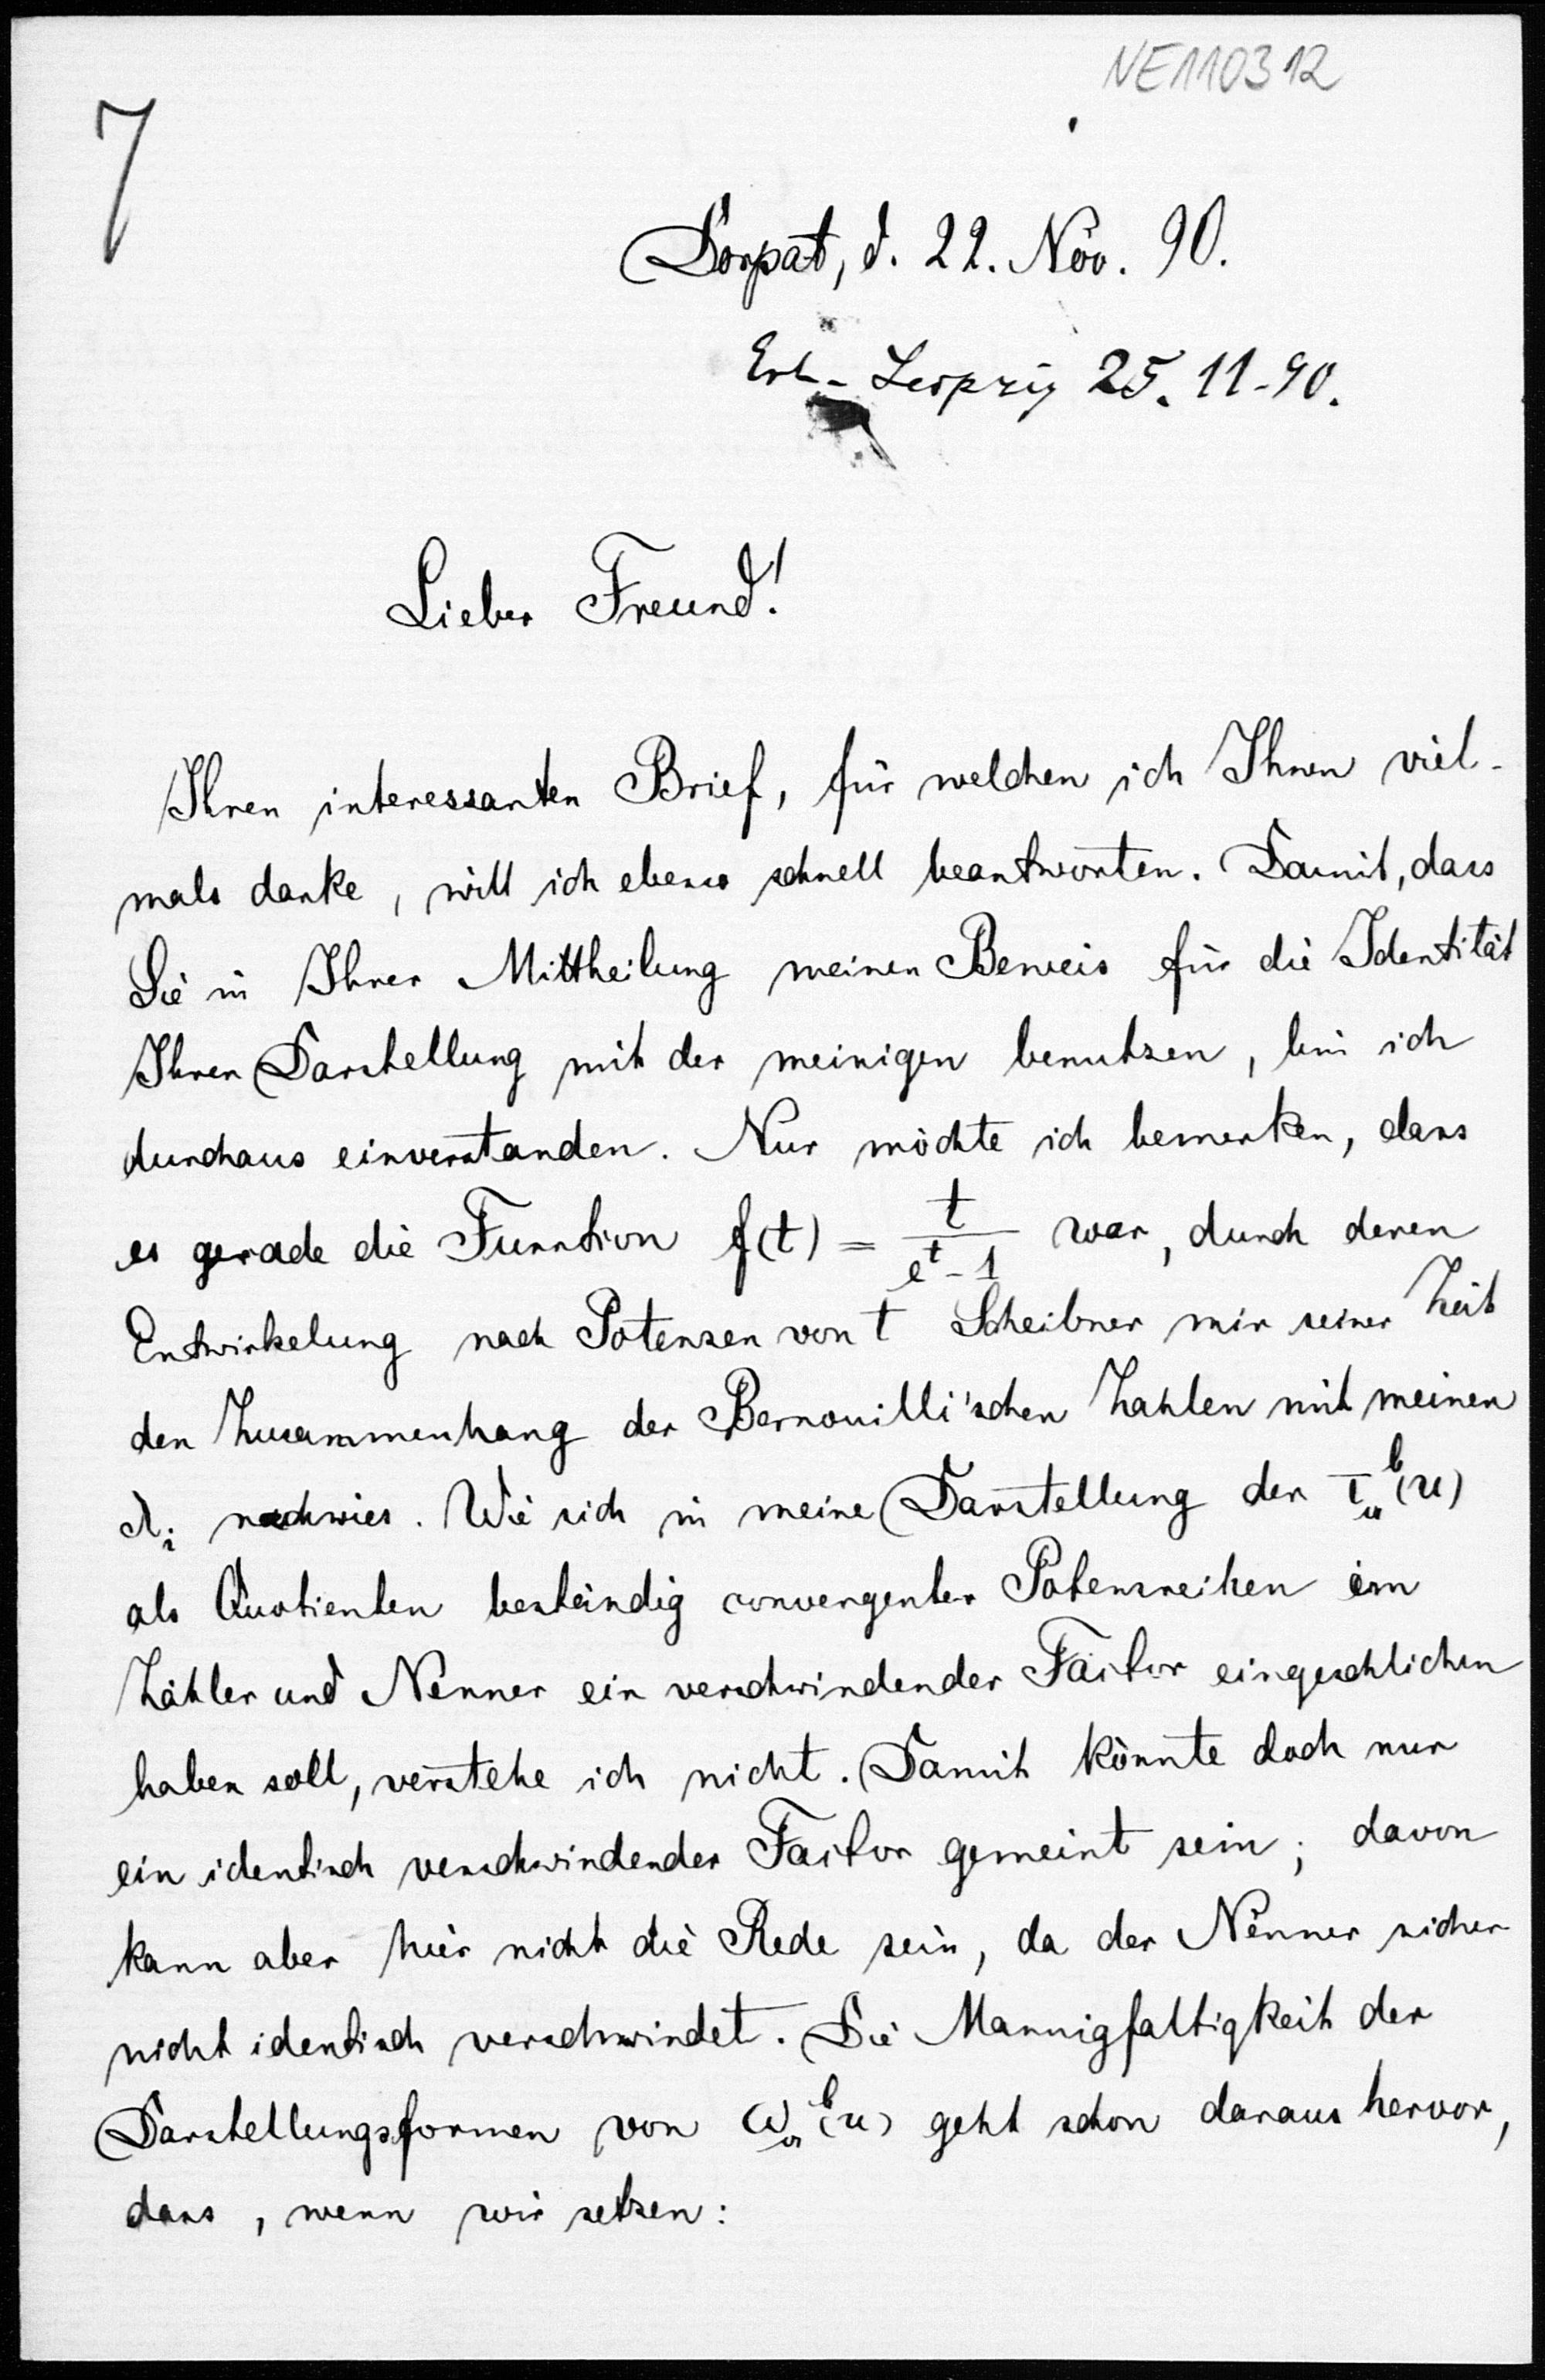 NE110312
7
Dorpat, d. 22. Nov. 90.
Erh. Leipzig 25. 11-90.
Lieber Freund!
Ihren interessanten Brief, für welchen ich Ihnen viel-
mals danke, will ich ebenso schnell beantworten. Damit, dass
Sie in Ihrer Mittheilung meinen Beweis für die Identität
Ihrer Darstellung mit der meinigen benutzen, bin ich
durchaus einverstanden. Nur möchte ich bemerken, dass
es gerade die Function f(t) = t/(e^t - 1) war, durch deren
Entwickelung nach Potenzen von t Scheibner mir seiner Zeit
den Zusammenhang der Bernouilli'schen Zahlen mit meinen
nachwies. Wie sich in meine Darstellung der (u)
als Quotienten beständig convergenter Potenzreihen im
Zähler und Nenner ein verschwindender Factor eingeschlichen
haben soll, verstehe ich nicht. Damit könnte doch nur
ein identisch verschwindender Factor gemeint sein; davon
kann aber hier nicht die Rede sein, da der Nenner sicher
nicht identisch verschwindet. Die Mannigfaltigkeit der
Darstellungsformen von (u) geht schon daraus hervor,
dass, wenn wir setzen: